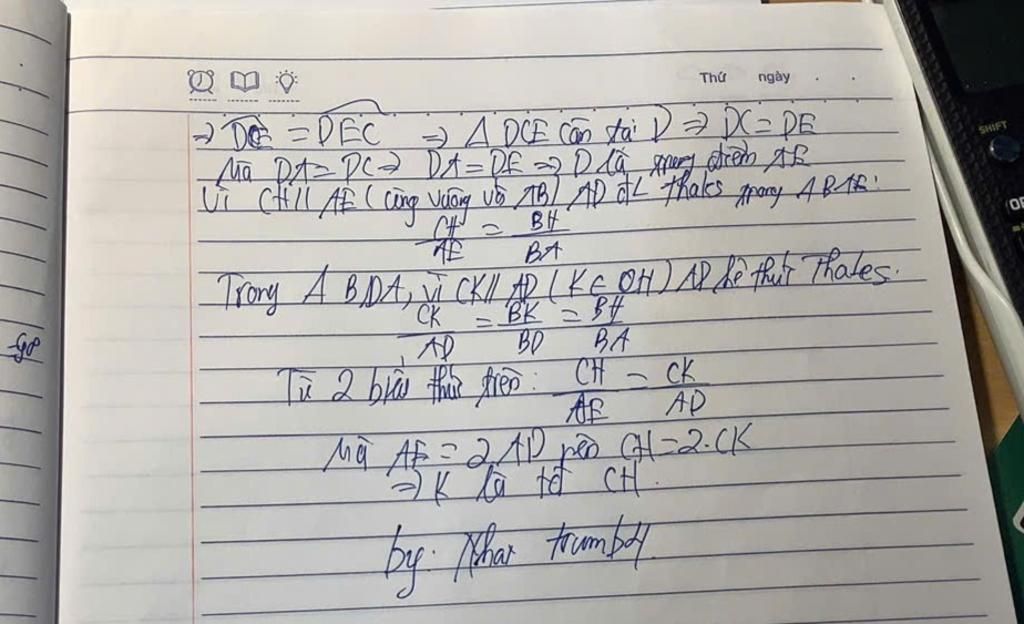 Thứ ngày . .
⇒ DCE = DEC ⇒ Δ DCE cân tại D ⇒ DC = DE
Mà DA = DC ⇒ DA = DE ⇒ D là trung điểm AE
Vì CH // AE (cùng vuông vs AB) AD ĐL Thales trong Δ BAE:
CH/AE = BH/BA
Trong Δ BDA, vì CK // AD (K ∈ CH) AD hệ thức Thales.
CK/AD = BK/BD = BH/BA
Từ 2 biểu thức trên: CH/AE = CK/AD
Mà AE = 2AD nên CH = 2.CK
⇒ K là tđ CH.
by:
SHIFT